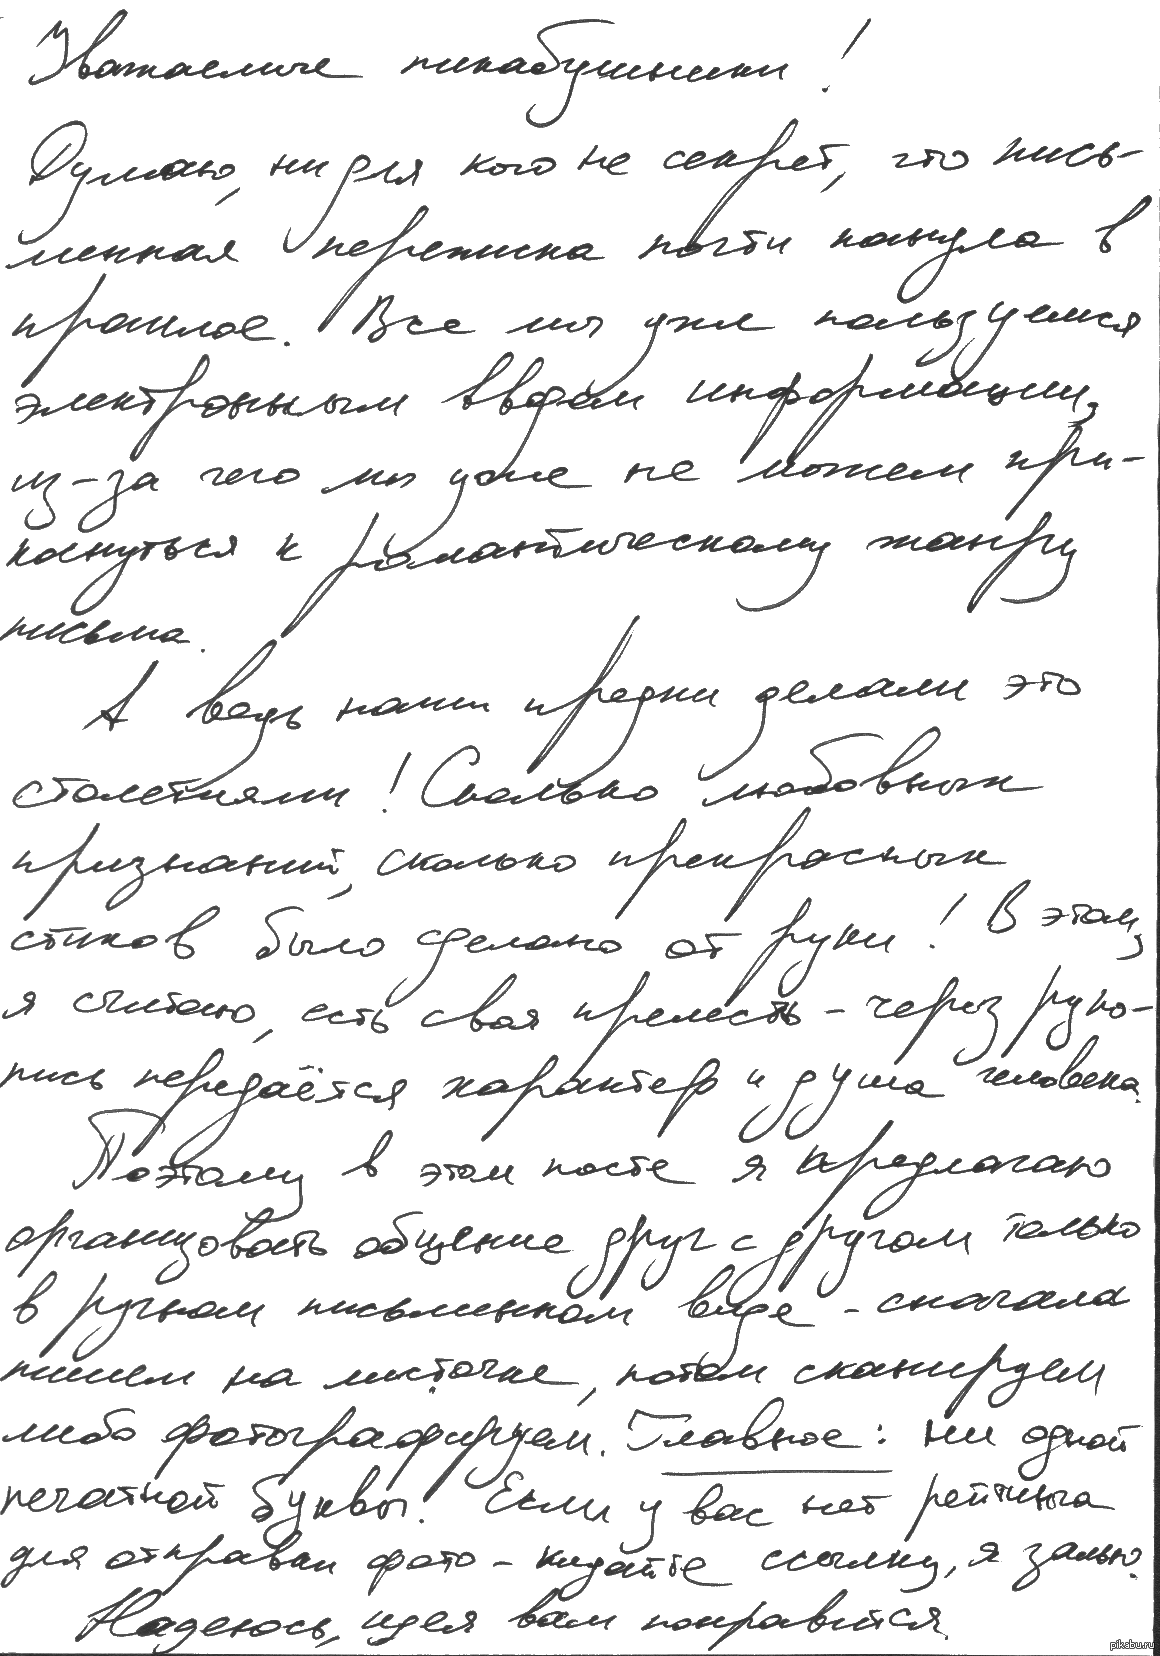 Уважаемые пикабушники!
Думаю, ни для кого не секрет, что пись-
менная переписка почти канула в
прошлое. Все мы уже пользуемся
электронным вводом информации,
из-за чего мы уже не можем при-
коснуться к романтическому жанру
письма.
А ведь наши предки делали это
столетиями! Сколько любовных
признаний, сколько прекрасных
стихов было сделано от руки! В этом,
я считаю, есть своя прелесть - через руко-
пись передаётся характер и душа человека.
Поэтому в этом посте я предлагаю
организовать общение друг с другом только
в ручном письменном виде - сначала
пишем на листочке, потом сканируем
либо фотографируем. Главное: ни одной
печатной буквы! Если у вас нет рейтинга
для отправки фото - кидайте ссылку, я залью.
Надеюсь, идея вам понравится.
pikabu.ru